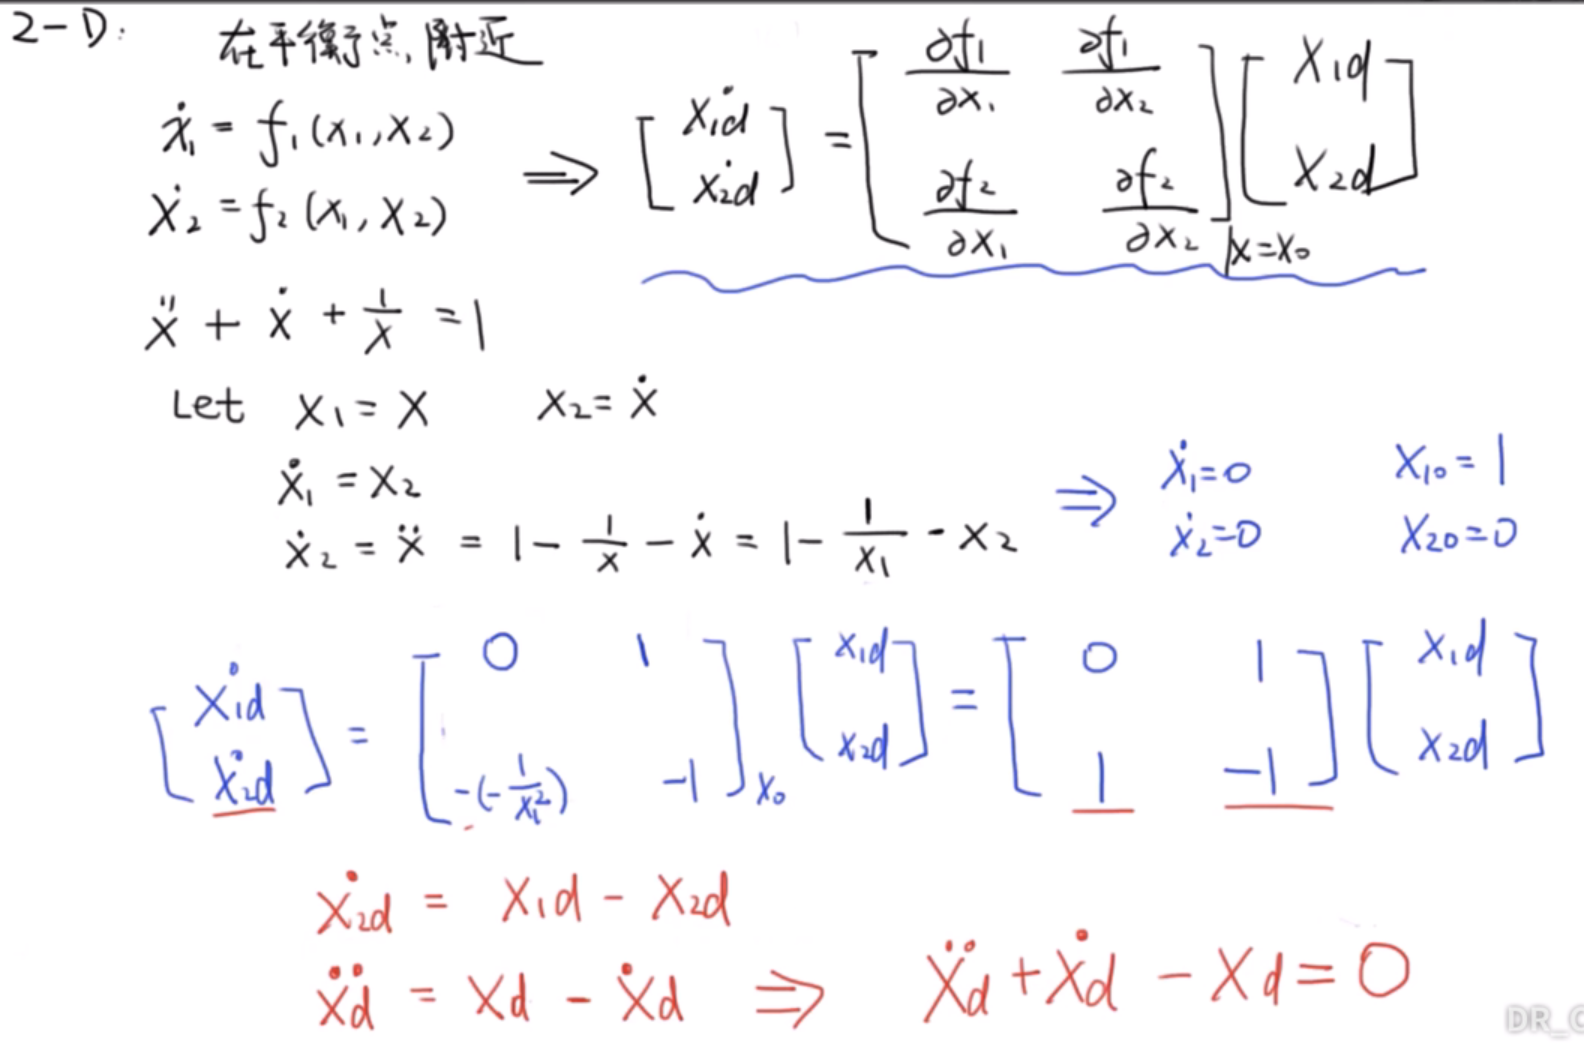 2-D: 在平衡点附近
ẋ₁ = f₁(x₁,x₂)
ẋ₂ = f₂(x₁,x₂)
⇒ [ẋ₁d ẋ₂d] = [∂f₁/∂x₁ ∂f₁/∂x₂ ∂f₂/∂x₁ ∂f₂/∂x₂]|x=x₀ [x₁d x₂d]
ẍ + ẋ + 1/x = 1
Let x₁ = x x₂ = ẋ
ẋ₁ = x₂
ẋ₂ = ẍ = 1 - 1/x - ẋ = 1 - 1/x₁ - x₂
⇒ ẋ₁=0 x₁₀=1
ẋ₂=0 x₂₀=0
[ẋ₁d ẋ₂d] = [0 1 -(-1/x₁²) -1]x₀ [x₁d x₂d] = [0 1 1 -1] [x₁d x₂d]
ẋ₂d = x₁d - x₂d
ẍd = xd - ẋd ⇒ ẍd + ẋd - xd = 0